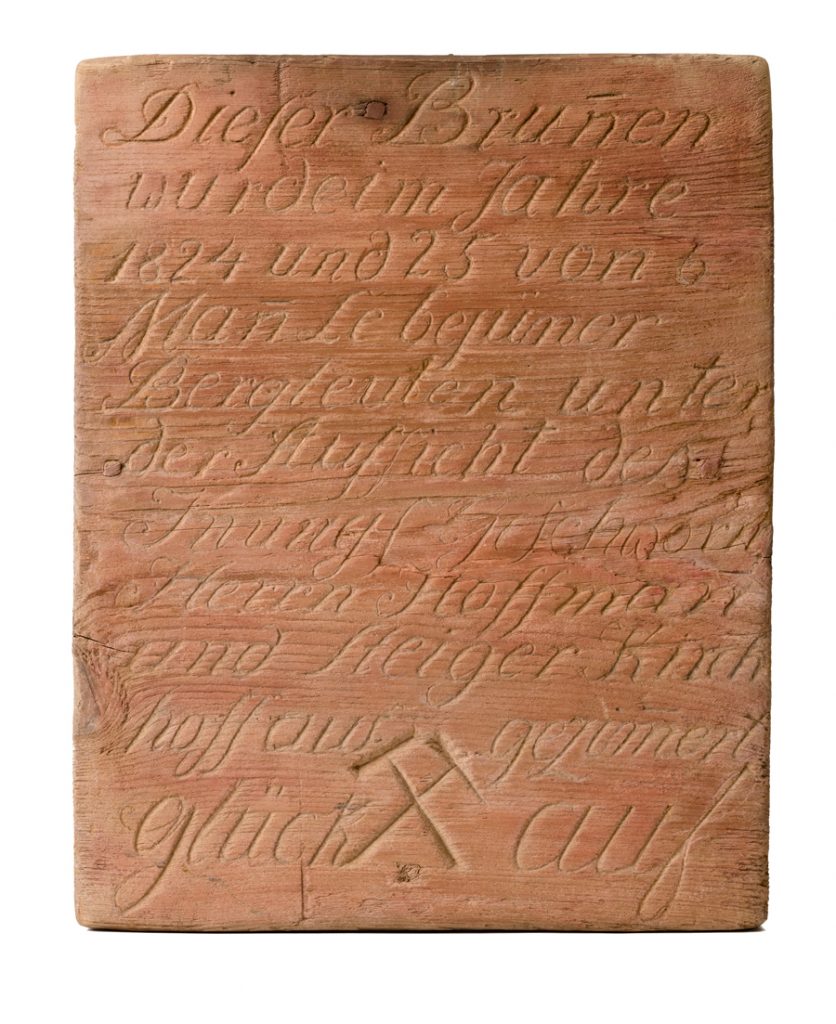 Dieser Brun̄en
wurde im Jahre
1824 und 25 von 6
Man̄ Lebejuner
Bergleuten unter
der Aufsicht des
Herrn Hoffman
und Steiger Kirch
hoff aus gezim̄ert
glück auf